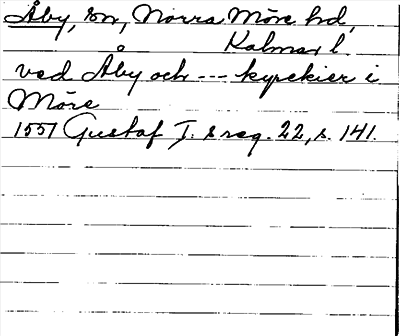 Åby, sn, Norra Möre hd,
Kalmar l.
ved Åby och --- kyrckier i
Möre
1557 Gustaf I:s reg. 22, s. 141.